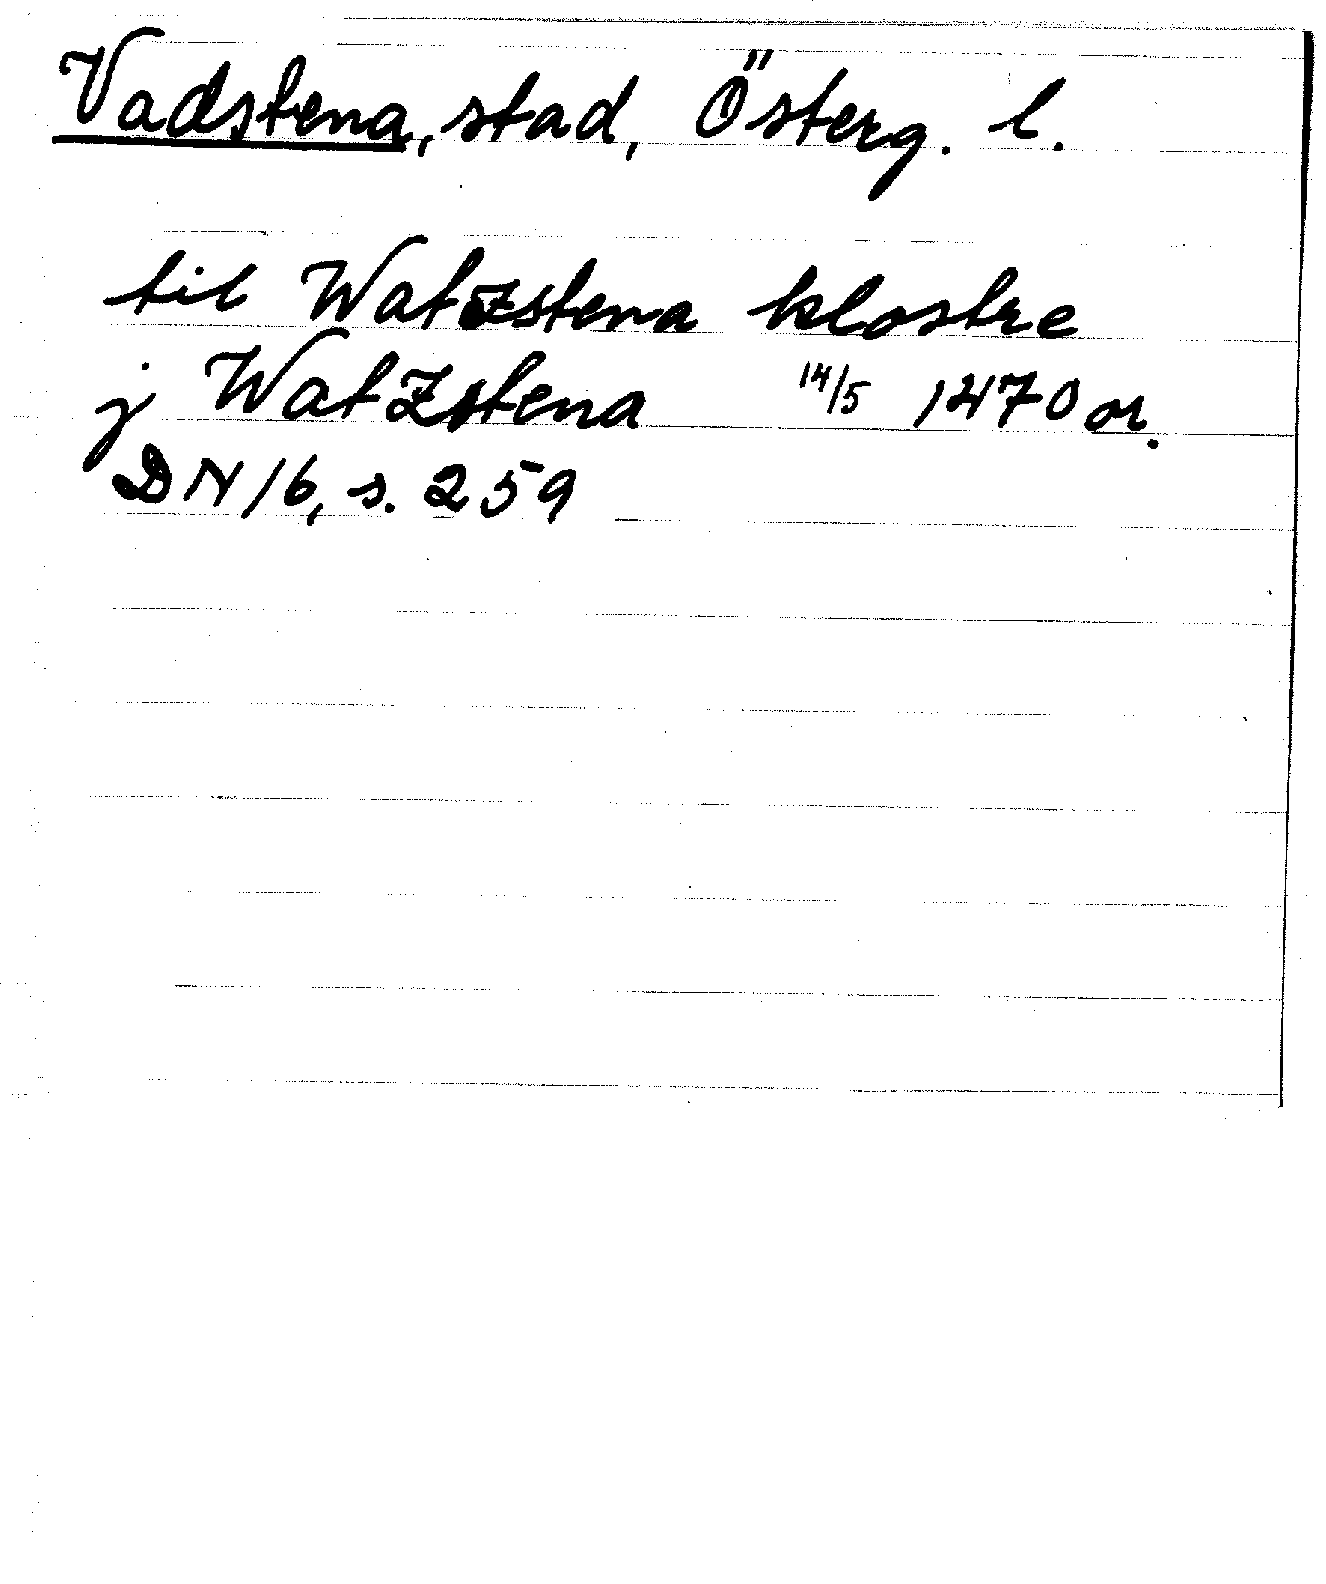 Vadstena, stad, Österg. l.
til Watzstena klostre
j Watzstena 14/5 1470 or.
DN 16, s. 259